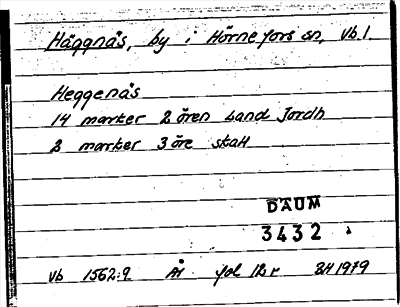 Häggnäs, by i Hörnefors sn, Vb.l.
Heggenås
14 marker 2 ören Land Jordh
2 marker 3 öre skatt
DAUM
3432
Vb 1562:9 Ål fol 12 r 1979